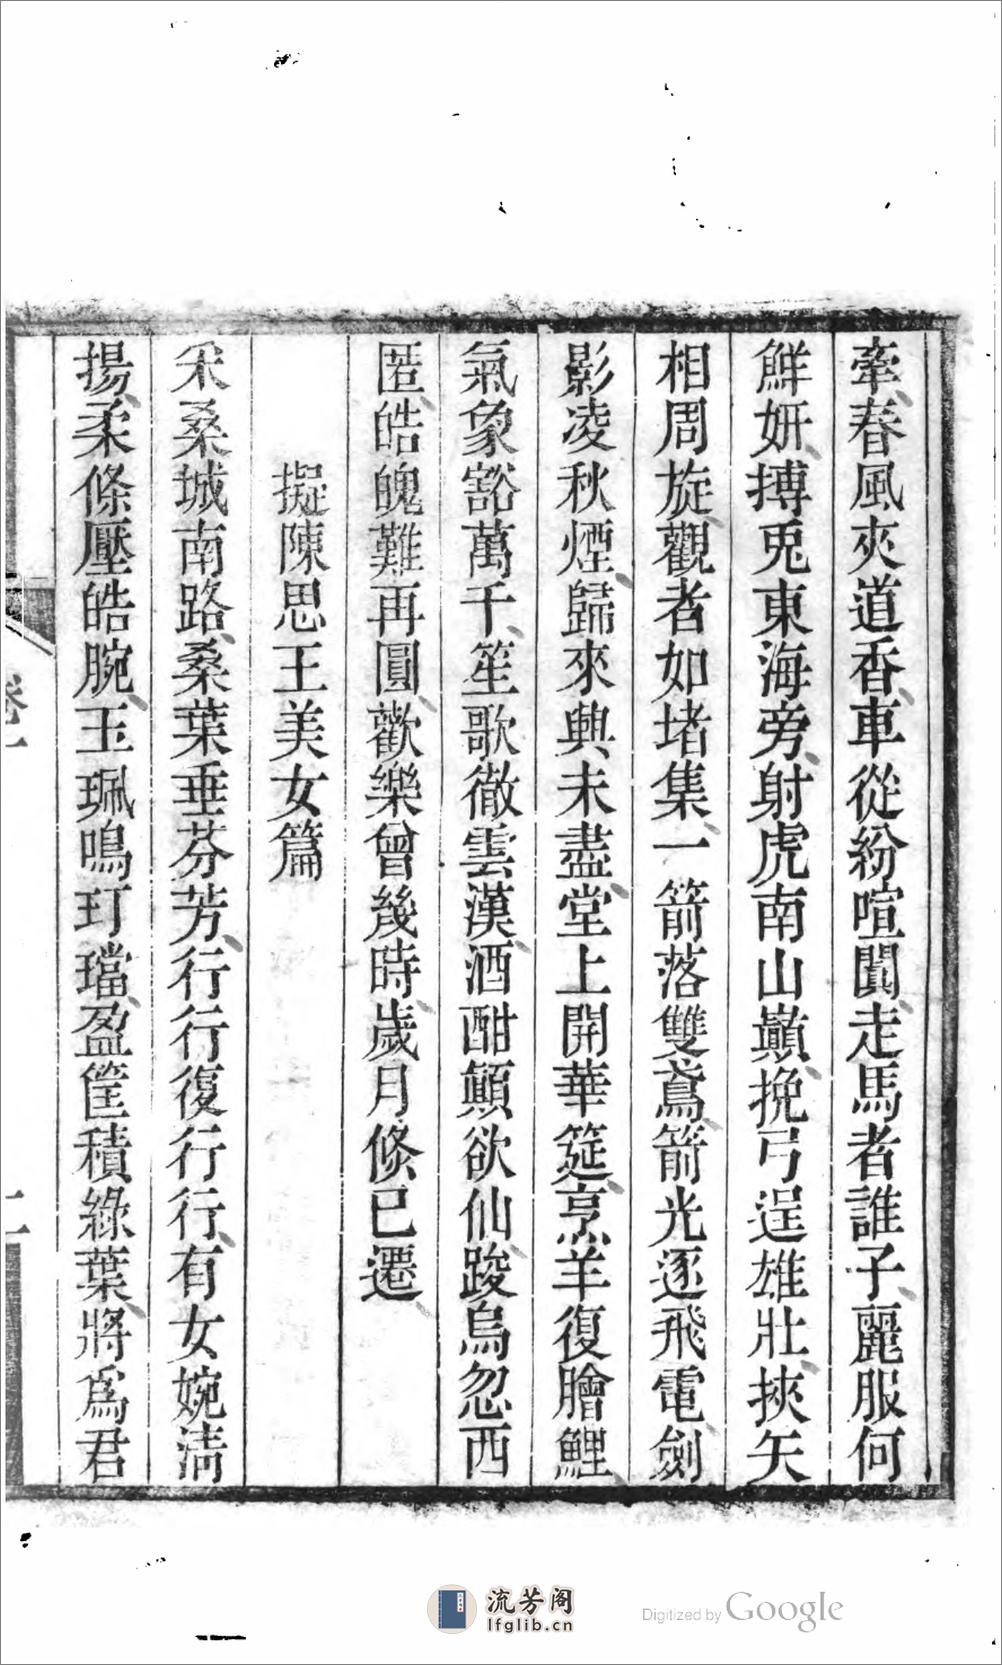 牽春風夾道香車從紛喧闐走馬者誰子麗服何
鮮妍搏兎東海旁射虎南山巔挽弓逞雄壯挾矢
相周旋觀者如堵集一箭落雙鳶箭光逐飛電劍
影凌秋煙歸來興未盡堂上開華筵烹羊復膾鯉
氣象豁萬千笙歌徹雲漢酒酣顛欲仙踆烏忽西
匿皓魄難再圓歡樂曾幾時歲月倏已遷
擬陳思王美女篇
采桑城南路桑葉垂芬芳行行復行行有女婉淸
揚柔條壓皓腕玉珮鳴玎璫盈筐積綠葉將爲君
卷一
流芳阁
lfglib.cn
Digitized by Google